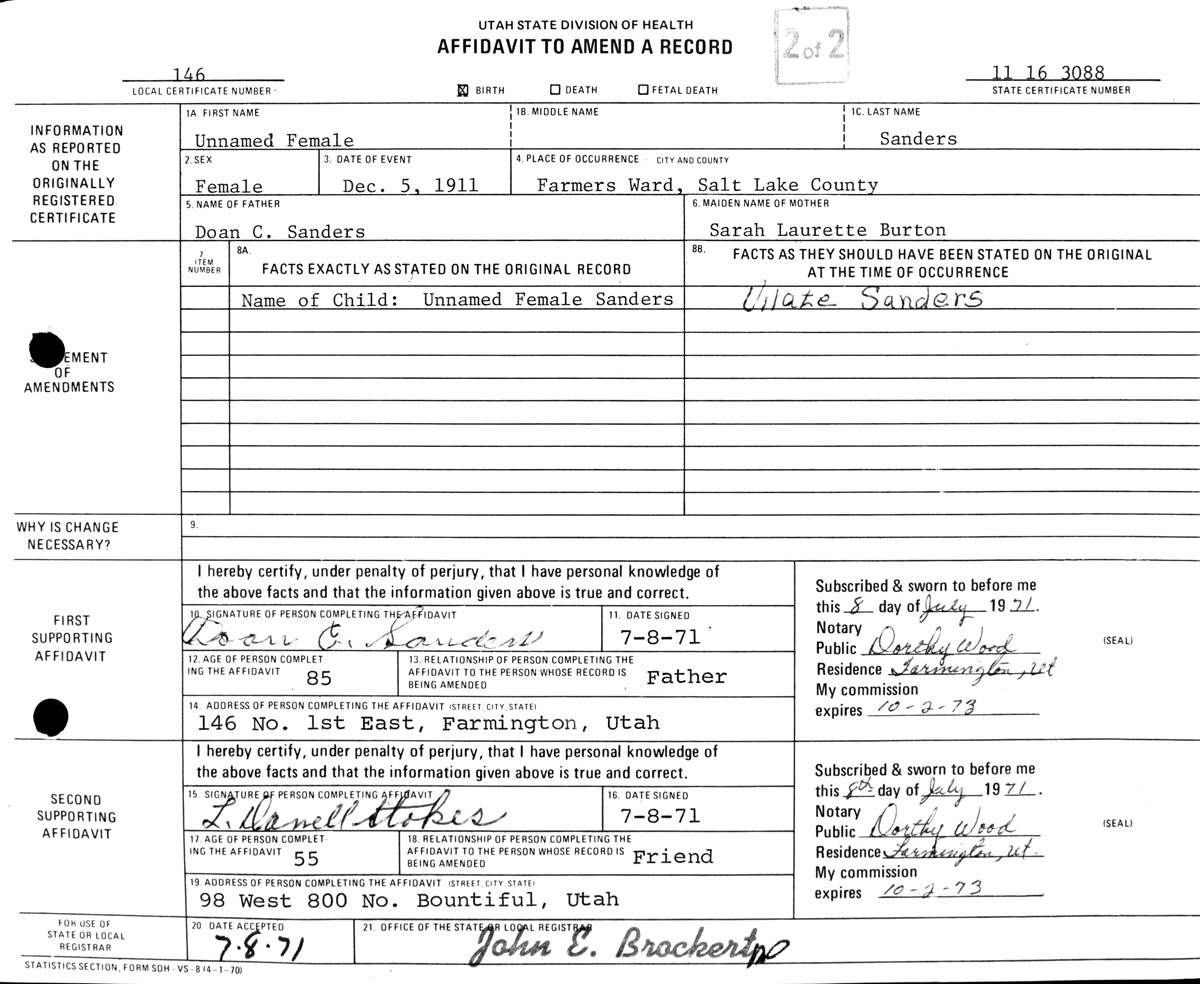 UTAH STATE DIVISION OF HEALTH
AFFIDAVIT TO AMEND A RECORD
2 of 2
146
LOCAL CERTIFICATE NUMBER
☒ BIRTH ☐ DEATH ☐ FETAL DEATH
11 16 3088
STATE CERTIFICATE NUMBER
INFORMATION
AS REPORTED
ON THE
ORIGINALLY
REGISTERED
CERTIFICATE
1A. FIRST NAME
Unnamed Female
1B. MIDDLE NAME
1C. LAST NAME
Sanders
2. SEX
Female
3. DATE OF EVENT
Dec. 5, 1911
4. PLACE OF OCCURRENCE CITY AND COUNTY
Farmers Ward, Salt Lake County
5. NAME OF FATHER
Doan C. Sanders
6. MAIDEN NAME OF MOTHER
Sarah Laurette Burton
EMENT
OF
AMENDMENTS
7
ITEM
NUMBER
8A.
FACTS EXACTLY AS STATED ON THE ORIGINAL RECORD
8B. FACTS AS THEY SHOULD HAVE BEEN STATED ON THE ORIGINAL
AT THE TIME OF OCCURRENCE
Name of Child: Unnamed Female Sanders
Vilate Sanders
WHY IS CHANGE
NECESSARY?
9.
FIRST
SUPPORTING
AFFIDAVIT
I hereby certify, under penalty of perjury, that I have personal knowledge of
the above facts and that the information given above is true and correct.
10. SIGNATURE OF PERSON COMPLETING THE AFFIDAVIT
Doan C. Sanders
11. DATE SIGNED
7-8-71
12. AGE OF PERSON COMPLET-
ING THE AFFIDAVIT 85
13. RELATIONSHIP OF PERSON COMPLETING THE
AFFIDAVIT TO THE PERSON WHOSE RECORD IS
BEING AMENDED
Father
14. ADDRESS OF PERSON COMPLETING THE AFFIDAVIT (STREET, CITY, STATE)
146 No. 1st East, Farmington, Utah
Subscribed & sworn to before me
this 8 day of July 1971.
Notary
Public Dorthy Wood
Residence Farmington, Ut
My commission
expires 10-2-73
(SEAL)
SECOND
SUPPORTING
AFFIDAVIT
I hereby certify, under penalty of perjury, that I have personal knowledge of
the above facts and that the information given above is true and correct.
15. SIGNATURE OF PERSON COMPLETING AFFIDAVIT
L. Darrell Stokes
16. DATE SIGNED
7-8-71
17. AGE OF PERSON COMPLET-
ING THE AFFIDAVIT 55
18. RELATIONSHIP OF PERSON COMPLETING THE
AFFIDAVIT TO THE PERSON WHOSE RECORD IS
BEING AMENDED
Friend
19. ADDRESS OF PERSON COMPLETING THE AFFIDAVIT (STREET, CITY, STATE)
98 West 800 No. Bountiful, Utah
Subscribed & sworn to before me
this 8th day of July 1971.
Notary
Public Dorthy Wood
Residence Farmington, Ut.
My commission
expires 10-2-73
(SEAL)
FOR USE OF
STATE OR LOCAL
REGISTRAR
20. DATE ACCEPTED
7-8-71
21. OFFICE OF THE STATE OR LOCAL REGISTRAR
John E. Brockert
STATISTICS SECTION, FORM SDH - VS-8 (4-1-70)